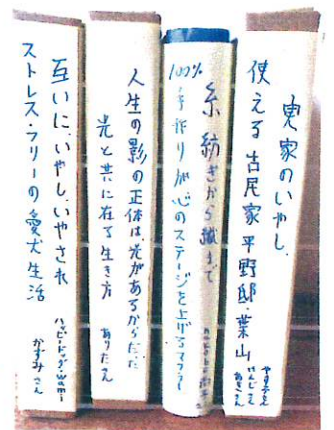 実家のいやし
使える古民家 平野邸・葉山
やすこさん
けんじさん
あきさん
糸紡ぎから織まで
100%手作りが心のステージを上げるマフラー
人生の影の正体は、光があるからだった
光と共に在る生き方
ありたさん
互いに、いやし、いやされ
ストレス・フリーの愛犬生活
ハッピードッグ・wami
かずみさん